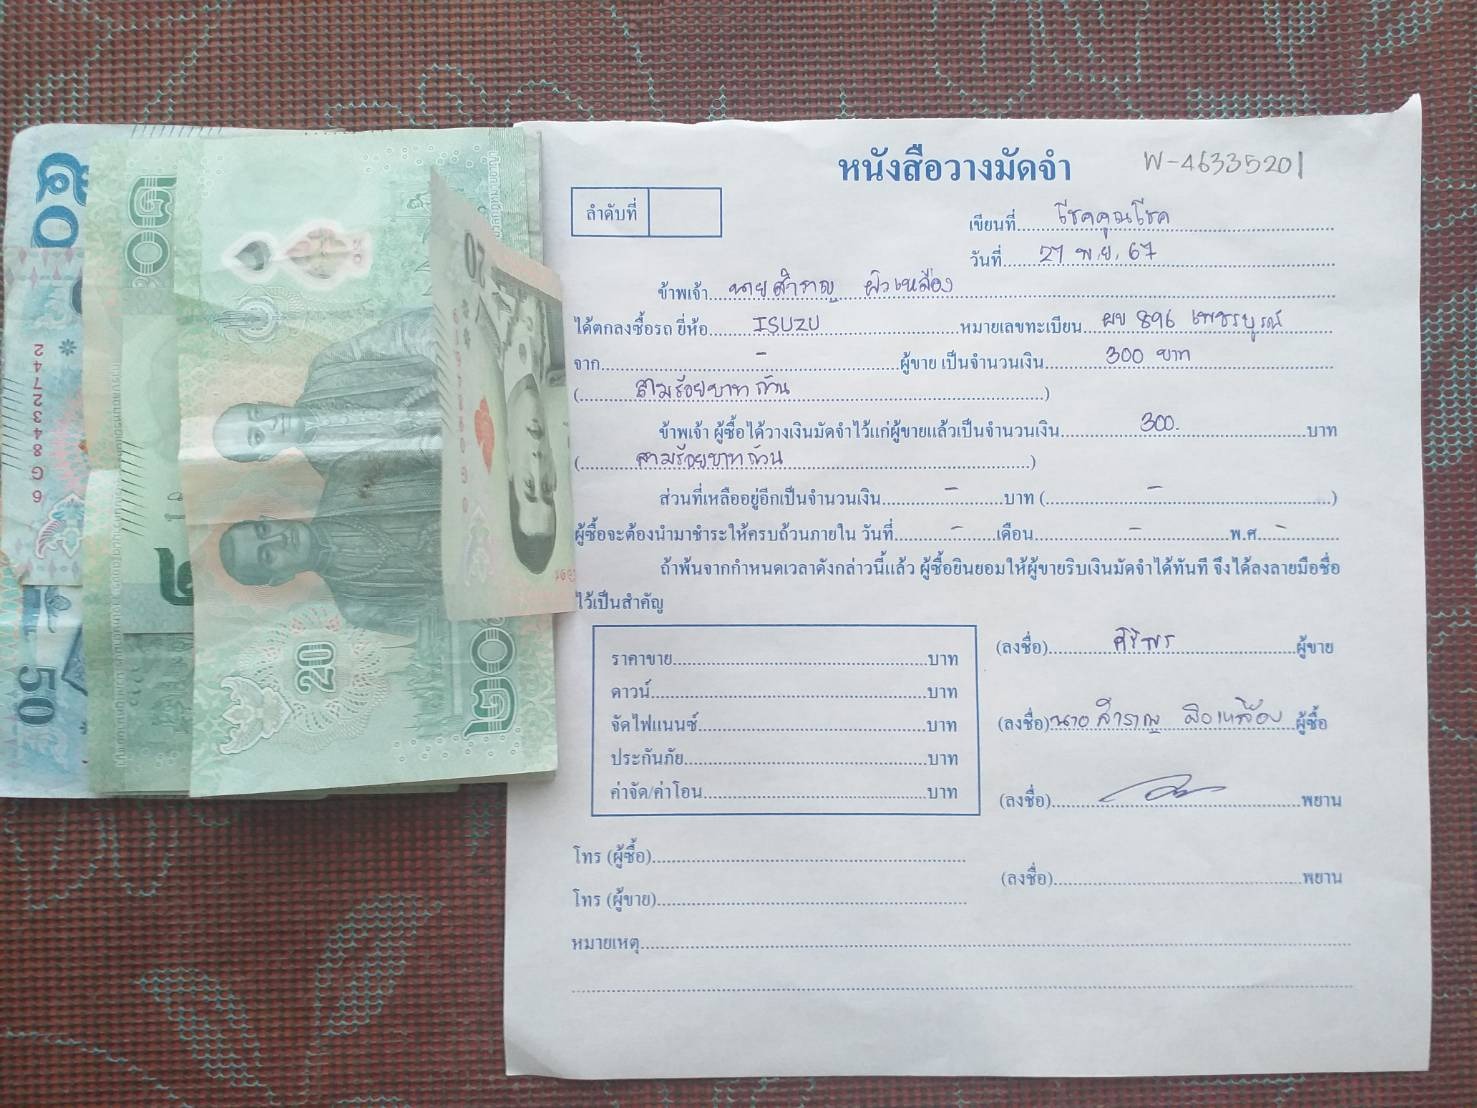 หนังสือวางมัดจำ W-46335201
ลำดับที่
เขียนที่ โชคคูณโชค
วันที่ 27 พ.ย. 67
ข้าพเจ้า นายสำราญ ผิวเหลือง
ได้ตกลงซื้อรถ ยี่ห้อ ISUZU หมายเลขทะเบียน ผข 896 เพชรบูรณ์
จาก - ผู้ขาย เป็นจำนวนเงิน 300 บาท
( สามร้อยบาทถ้วน )
ข้าพเจ้า ผู้ซื้อได้วางเงินมัดจำไว้แก่ผู้ขายแล้วเป็นจำนวนเงิน 300. บาท
( สามร้อยบาทถ้วน )
ส่วนที่เหลืออยู่อีกเป็นจำนวนเงิน - บาท ( - )
ผู้ซื้อจะต้องนำมาชำระให้ครบถ้วนภายใน วันที่ - เดือน - พ.ศ. -
ถ้าพ้นจากกำหนดเวลาดังกล่าวนี้แล้ว ผู้ซื้อยินยอมให้ผู้ขายริบเงินมัดจำได้ทันที จึงได้ลงลายมือชื่อ
ไว้เป็นสำคัญ
ราคาขาย บาท
ดาวน์ บาท
จัดไฟแนนซ์ บาท
ประกันภัย บาท
ค่าจัด/ค่าโอน บาท
(ลงชื่อ) ศิริพร ผู้ขาย
(ลงชื่อ) นายสำราญ ผิวเหลือง ผู้ซื้อ
(ลงชื่อ) พยาน
(ลงชื่อ) พยาน
โทร (ผู้ซื้อ)
โทร (ผู้ขาย)
หมายเหตุ
๕๐
6 G 8432742
50
๒๐
20
๒๐
20